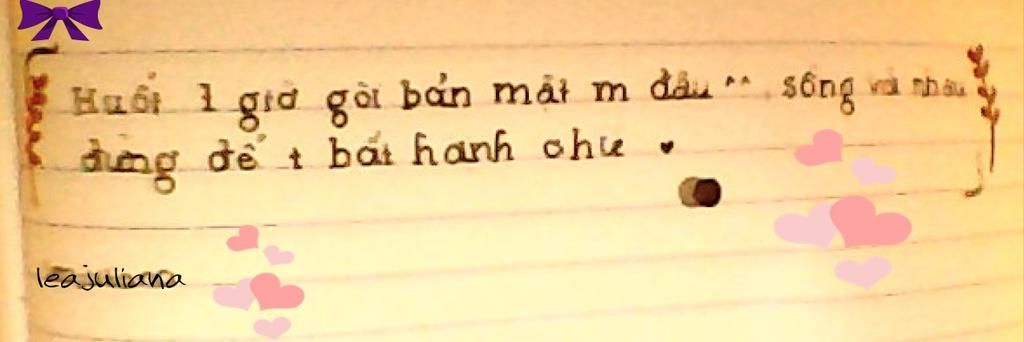 Huốt 1 giờ gòi bản mặt m đâu ^^ sống với nhau
đừng để t bất hạnh chứ ♥
leajuliana